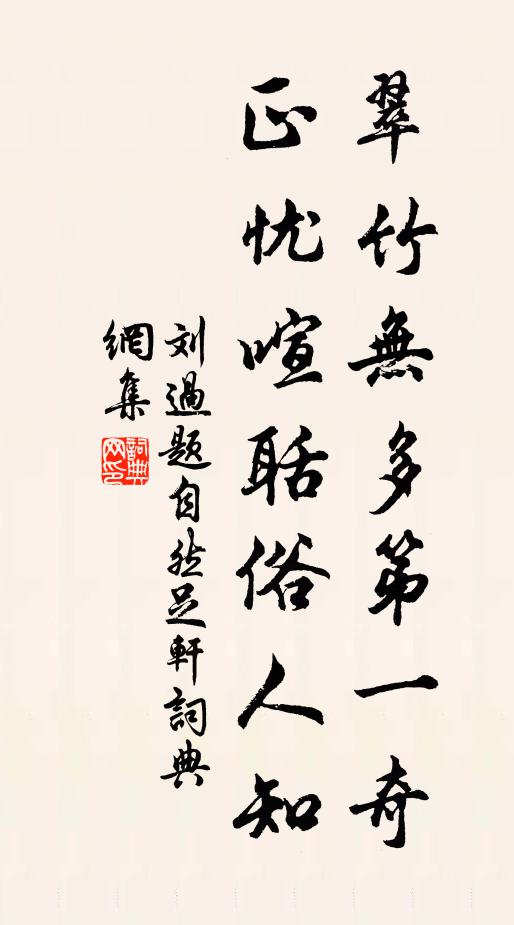 翠竹無多第一奇
正忧喧聒俗人知
刘過题自然足軒詞典
網集
詞典網印